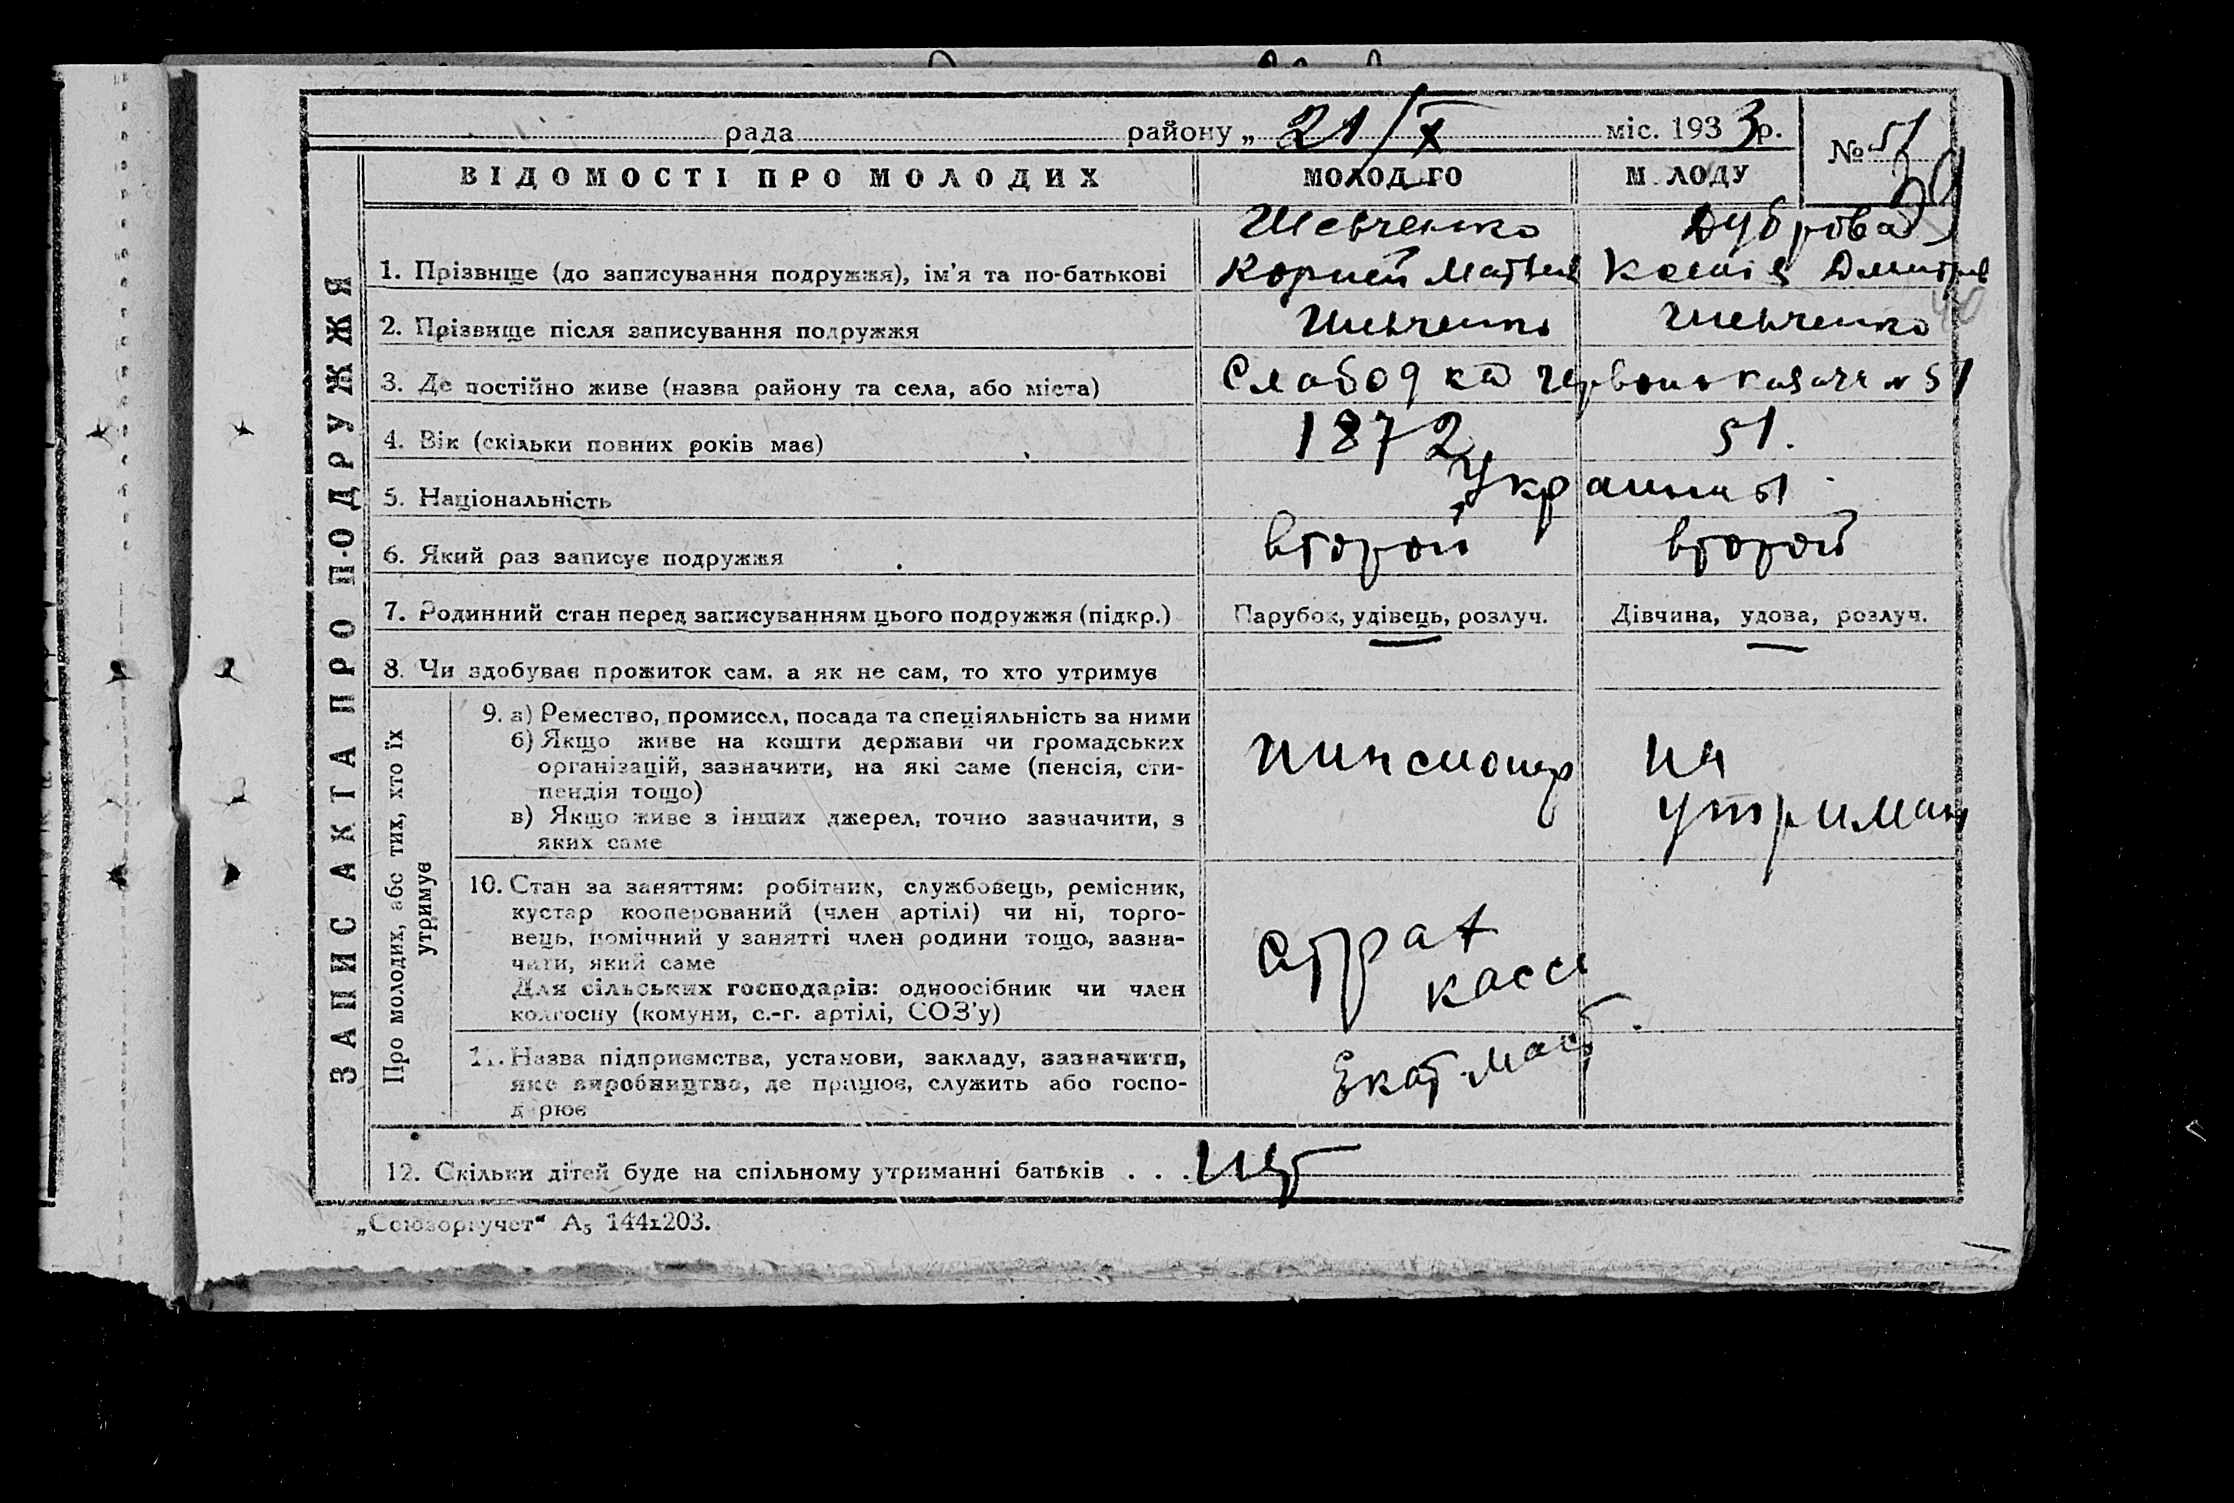 рада району „ 21/X міс. 1933 р.
№ 51
39
ВІДОМОСТІ ПРО МОЛОДИХ МОЛОД ГО М ЛОДУ
Шевченко Дуброва
1. Прізвище (до записування подружжя), ім’я та по-батькові Корней Матвеев Ксенія Дмитрів
40
2. Прізвище після записування подружжя Шевченко Шевченко
3. Де постійно живе (назва району та села, або міста) Слабодка № 51
4. Вік (скільки повних років має) 1872 51.
5. Національність Украинцы
6. Який раз записує подружжя второй второй
7. Родинний стан перед записуванням цього подружжя (підкр.) Парубок, удівець, розлуч. Дівчина, удова, розлуч.
8. Чи здобуває прожиток сам, а як не сам, то хто утримує
9. а) Ремество, промисел, посада та спеціяльність за ними
б) Якщо живе на кошти держави чи громадських
організацій, зазначити, на які саме (пенсія, сти-
пендія тощо)
в) Якщо живе з інших джерел, точно зазначити, з
яких саме
пинсионер
на
утриман
10. Стан за заняттям: робітник, службовець, ремісник,
кустар кооперований (член артілі) чи ні, торго-
вець, помічний у занятті член родини тощо, зазна-
чити, який саме
Для сільських господарів: одноосібник чи член
колгоспу (комуни, с.-г. артілі, СОЗ’у)
страх
касси
11. Назва підприємства, установи, закладу, зазначити,
яке виробництво, де працює, служить або госпо-
д рює
Екат. маст.
12. Скільки дітей буде на спільному утриманні батьків . . . нет
ЗАПИС АКТА ПРО ПОДРУЖЖЯ
Про молодих, або тих, хто їх
утримує
„Союзоргучет“ А5 144x203.